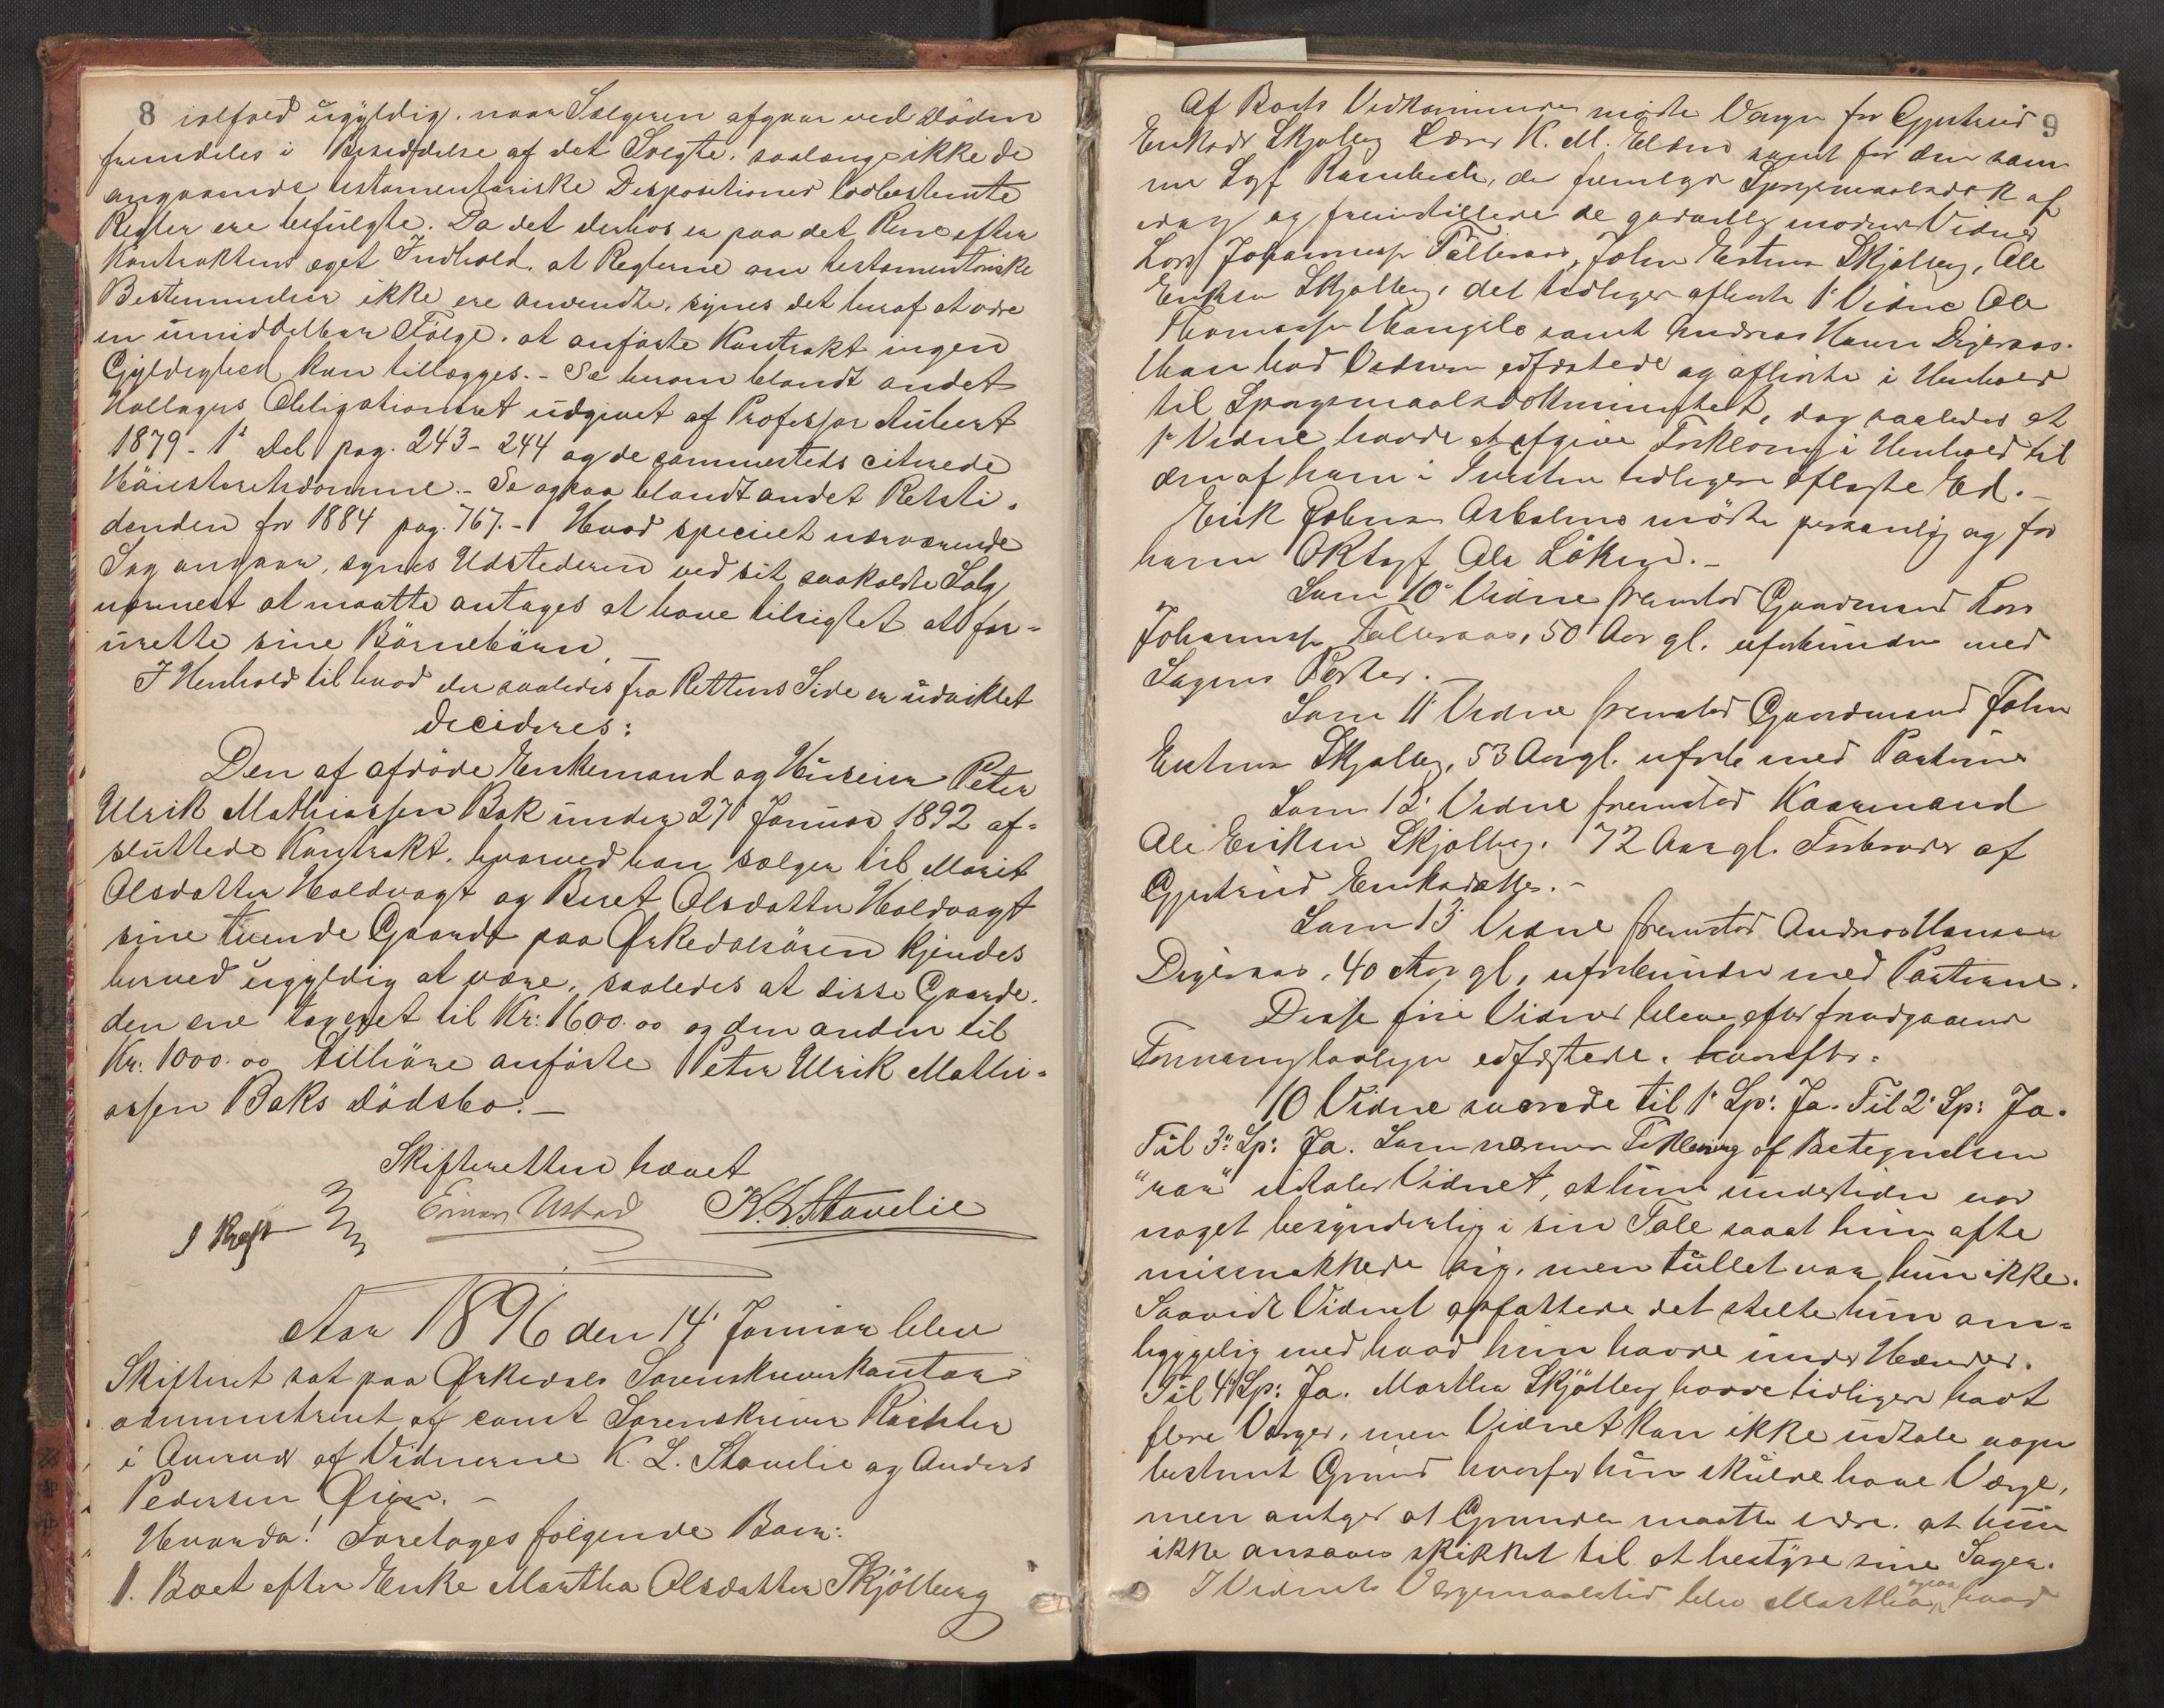 8
ialfald ugyldig, naar Sælgeren afgaar ved Döden
fremdeles i Besiddelse af det Solgte, saalænge ikke de
angaaende testamentariske Dispositioner lovbestemte
Regler ere befulgte. Da det derhos er paa det Rene efter
Kontraktens eget Indhold, at Reglerne om testamentariske
Bestemmelser ikke ere anvendte, synes det heraf at være
en umiddelbar Følge, at anførte Kontrakt ingen
Gyldighed kan tillægges. - Se herom blandt andet
Hallagers Obligationsret udgivet af Professor Aubert
1879 - 1ste Del pag. 243 - 244 og de sammesteds citerede
Höiesteretsdomme. - Se ogsaa blandt andet Retsti-
denden for 1884 pag. 767. - Hvad specielt nærværende
Sag angaar, synes Udstederen ved sit saakaldte Salg
nærmest at maatte antages at have tilsigtet at for-
urette sine Börnebörn. -
I Henhold til hvad der saaledes fra Rettens Side er udviklet
decideres:
Den af afdöde Enkemand og Huseier Peter
Ulrik Mathiassen Bak under 27 Januar 1892 af-
sluttede Kontrakt, hvorved han sælger til Marit
Olsdatter Holdvagt og Beret Olsdatter Holdvagt
sine tvende Gaarde paa Ørkedalsören kjendes
herved ugyldig at være, saaledes at disse Gaarde,
den ene taxeret til Kr: 1600.00 og den anden til
Kr. 1000.00 tilhöre anförte Peter Ulrik Mathi-
assen Baks Dödsbo. -
Skifteretten hævet
Einar Ustad K. L. Stavelie
Aar 1896 den 14 Januar blev
Skifteret sat paa Ørkedals Sorenskriverkontor
administreret af const Sorenskriver Richter
i Overvær af Vidnerne K. L. Stavelie og Anders
Pedersen Øien. -
Hvorda! Foretages følgende Boer:
1. Boet efter Enke Martha Olsdatter Skjölberg
9
Af Boets Vedkommende mödte Værge for Gjertrud
Eriksdr Skjølberg Lærer K. M. Eldens samt for den sam-
me Sgf Rambech, der fremlgr Spørgsmaalsdok af
idag og fremstillede de godvillig mödende Vidner
Lars Johannessen Talleraas, John Estensen Skjølberg, Ole
Eriksen Skjølberg, det tidligere afhørte 1ste Vidne Ole
Thomassen samt Andreas Hansen Digeraas.
Han bad Vidnerne edfæstede og afhørte i Henhold
til Spørgsmaalsdokumentet, dog saaledes at
1ste Vidne havde at afgive Forklaring i Henhold til
den af ham i tidligere aflagte Ed. -
Erik Johnsen Asbølmo mödte personlig og for
ham ORsagf Ole Löken. -
Som 10de Vidne fremstod Gaardmand Lars
Johannessen Talleraas, 50 Aar gl. uforbunden med
Sagens Parter. -
Som 11te Vidne fremstod Gaardmand John
Estensen Skjølberg, 53 Aar gl. uforb med Parterne
Som 12te Vidne fremstod Kaarmand
Ole Eriksen Skjølberg, 72 Aar gl. Farbroder af
Gjertrud Eriksdatter. -
Som 13de Vidne fremstod Andreas Hansen
Digeraas, 40 Aar gl, uforbunden med Parterne.
Disse fire Vidner bleve efter foregaaende
Formaning lovligen edfæstede, hvorefter:
10 Vidne svarede til 1ste Sp: Ja. Til 2det Sp: Ja.
Til 3die Sp: Ja. Som nærmere Forklaring af Betegnelsen
"rar" udtaler Vidnet, at hun undertiden var
noget besynderlig i sin Tale saaat hun ofte
missnakkede sig, men tullet var hun ikke.
Saavidt Vidnet opfattede det stelte hun om-
hyggelig med hvad hun havde under Hænder.
Til 4de Sp: Ja. Martha Skjölberg havde tidligere havt
flere Værger, men Vidnet kan ikke udtale nogen
bestemt Grund hvorfor hun skulde have Værge,
men antager at Grunden maatte være, at hun
ikke ansaaes skikket til at bestyre sine Sager.
I Vidnets Værgemaalstid blev Martha ogsaa hvad